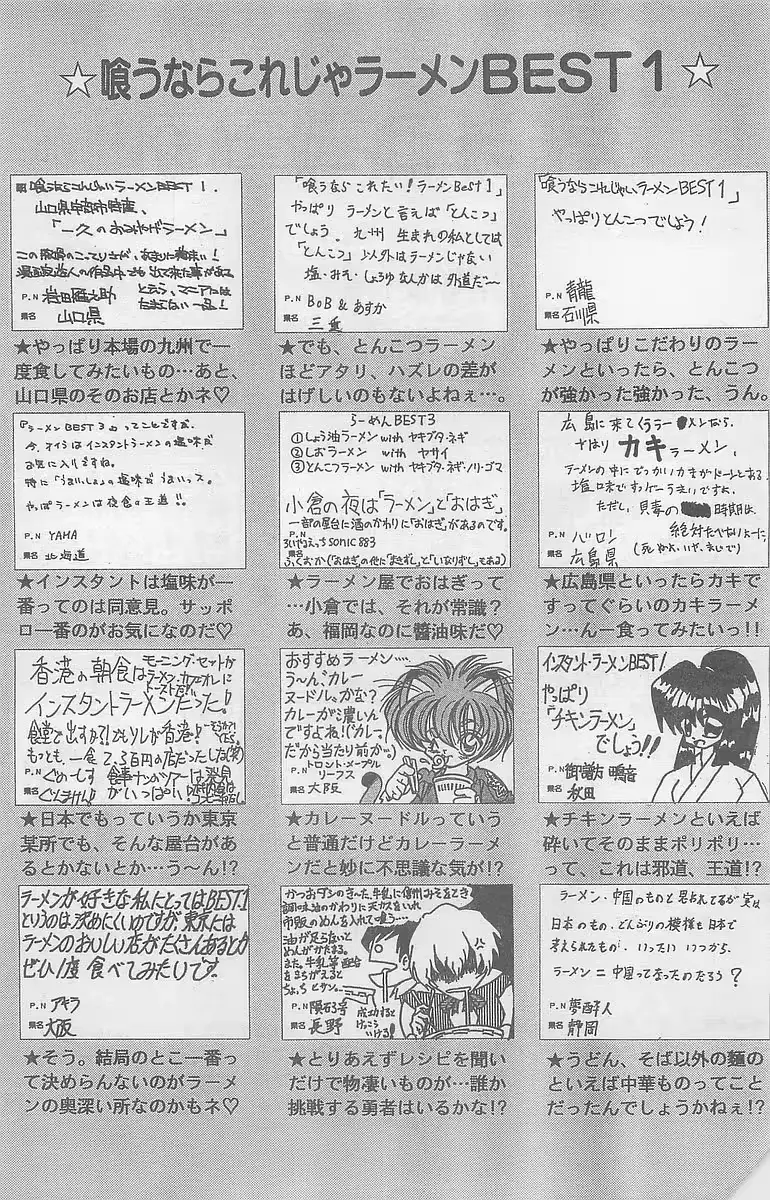 ☆喰うならこれじゃラーメンBEST1☆
喰うならこんじゃいラーメンBEST1.
山口県宇部市特産、
「一久のおみやげラーメン」
この豚骨のこってりさが、あまりに美味い!
P.N 岩田隆之助
県名 山口県
★やっぱり本場の九州で一
度食してみたいもの…あと、
山口県のそのお店とかネ♡
「喰うなら これたい!ラーメンBest1」
やっぱり ラーメンと言えば「とんこつ」
でしょう。九州 生まれの私としては
「とんこつ」以外はラーメンじゃない
塩・みそ・しょうゆなんかは外道だ〜
P.N BoB & あすか
県名 三重
★でも、とんこつラーメン
ほどアタリ、ハズレの差が
はげしいのもないよねぇ…。
「喰うならこれじゃい、ラーメンBEST1」
やっぱりとんこつでしょう!
P.N 青龍
県名 石川県
★やっぱりこだわりのラー
メンといったら、とんこつ
が強かった強かった、うん。
『ラーメンBEST3』ってことですが、
今、オイラはインスタントラーメンの塩味が
お気に入りですね。
特に「うまいしょ」の塩味でうまいっス。
やっぱラーメンは夜食の王道!!
P.N YAMA
県名 北海道
★インスタントは塩味が一
番ってのは同意見。サッポ
ロ一番のがお気になのだ♡
らーめんBEST3
①しょう油ラーメン with ヤキブタ・ネギ
②しおラーメン with ヤサイ
③とんこつラーメン with ヤキブタ・ネギ・ノリ・ゴマ
小倉の夜は「ラーメン」と「おはぎ」
一部の屋台に酒のかわりに「おはぎ」があるのです。
P.N sonic883
県名 ふくおか(「おはぎ」の他に「まきずし」と「いなりずし」もある)
★ラーメン屋でおはぎって
…小倉では、それが常識?
あ、福岡なのに醬油味だ♡
広島に来てくうラーメンなら、
やはり カキラーメン、
ラーメンの中にでっかいカキがドーンとある
塩味ですっげーうまいですよ。
ただし、貝毒の時期は
絶対たべないよーに、
P.N バロン
県名 広島県
★広島県といったらカキで
すってぐらいのカキラーメ
ン…んー食ってみたいっ!!
香港の朝食は
モーニング・セットが
ラーメン・カフェオレに
トーストだし
インスタントラーメンだった!
食堂で出すか?!
もっとも、一食で、
P.N ぐめーしす
県名 ぐんまけん!!
★日本でもっていうか東京
某所でも、そんな屋台があ
るとかないとか…う〜ん!?
おすすめラーメン…
う〜ん、カレー
ヌードル。かな?
カレーが濃いん
ですよね!(カレー
だから当たり前か。)
P.N トロント・メープル
リーフス
県名 大阪
★カレーヌードルっていう
と普通だけどカレーラーメ
ンだと妙に不思議な気が!?
インスタント・ラーメンBEST1
やっぱり
「チキンラーメン」
でしょう!!
県名 秋田
★チキンラーメンといえば
砕いてそのままポリポリ…
って、これは邪道、王道!?
ラーメンが好きな私にとってはBEST.1
というのは決めにくいのですが、東京には
ラーメンのおいしい店がたくさんあるとか
ぜひ1度 食べてみたいです。
P.N アキラ
県名 大阪
★そう。結局のとこ一番っ
て決めらんないのがラーメ
ンの奥深い所なのかもネ♡
かつおダシのきーた、牛乳に信州みそをとき
調味油のかわりに天カスをいれ
市販のめんを入れて喰う…
油が足らないと
めんがかたまる。
また、牛乳等 配合
をまちがえると
ちょっちヒサン。
成功すると
けっこう
いける!
P.N 隕石3号
県名 長野
★とりあえずレシピを聞い
だけで物凄いものが…誰か
挑戦する勇者はいるかな!?
ラーメン、中国のものと思われてるが実は
日本のもの、どんぶりの模様も日本で
考えられたもの。いったい いつから、
ラーメン=中国ってなったのだろう?
P.N 夢酔人
県名 静岡
★うどん、そば以外の麺の
といえば中華ものってこと
だったんでしょうかねぇ!?